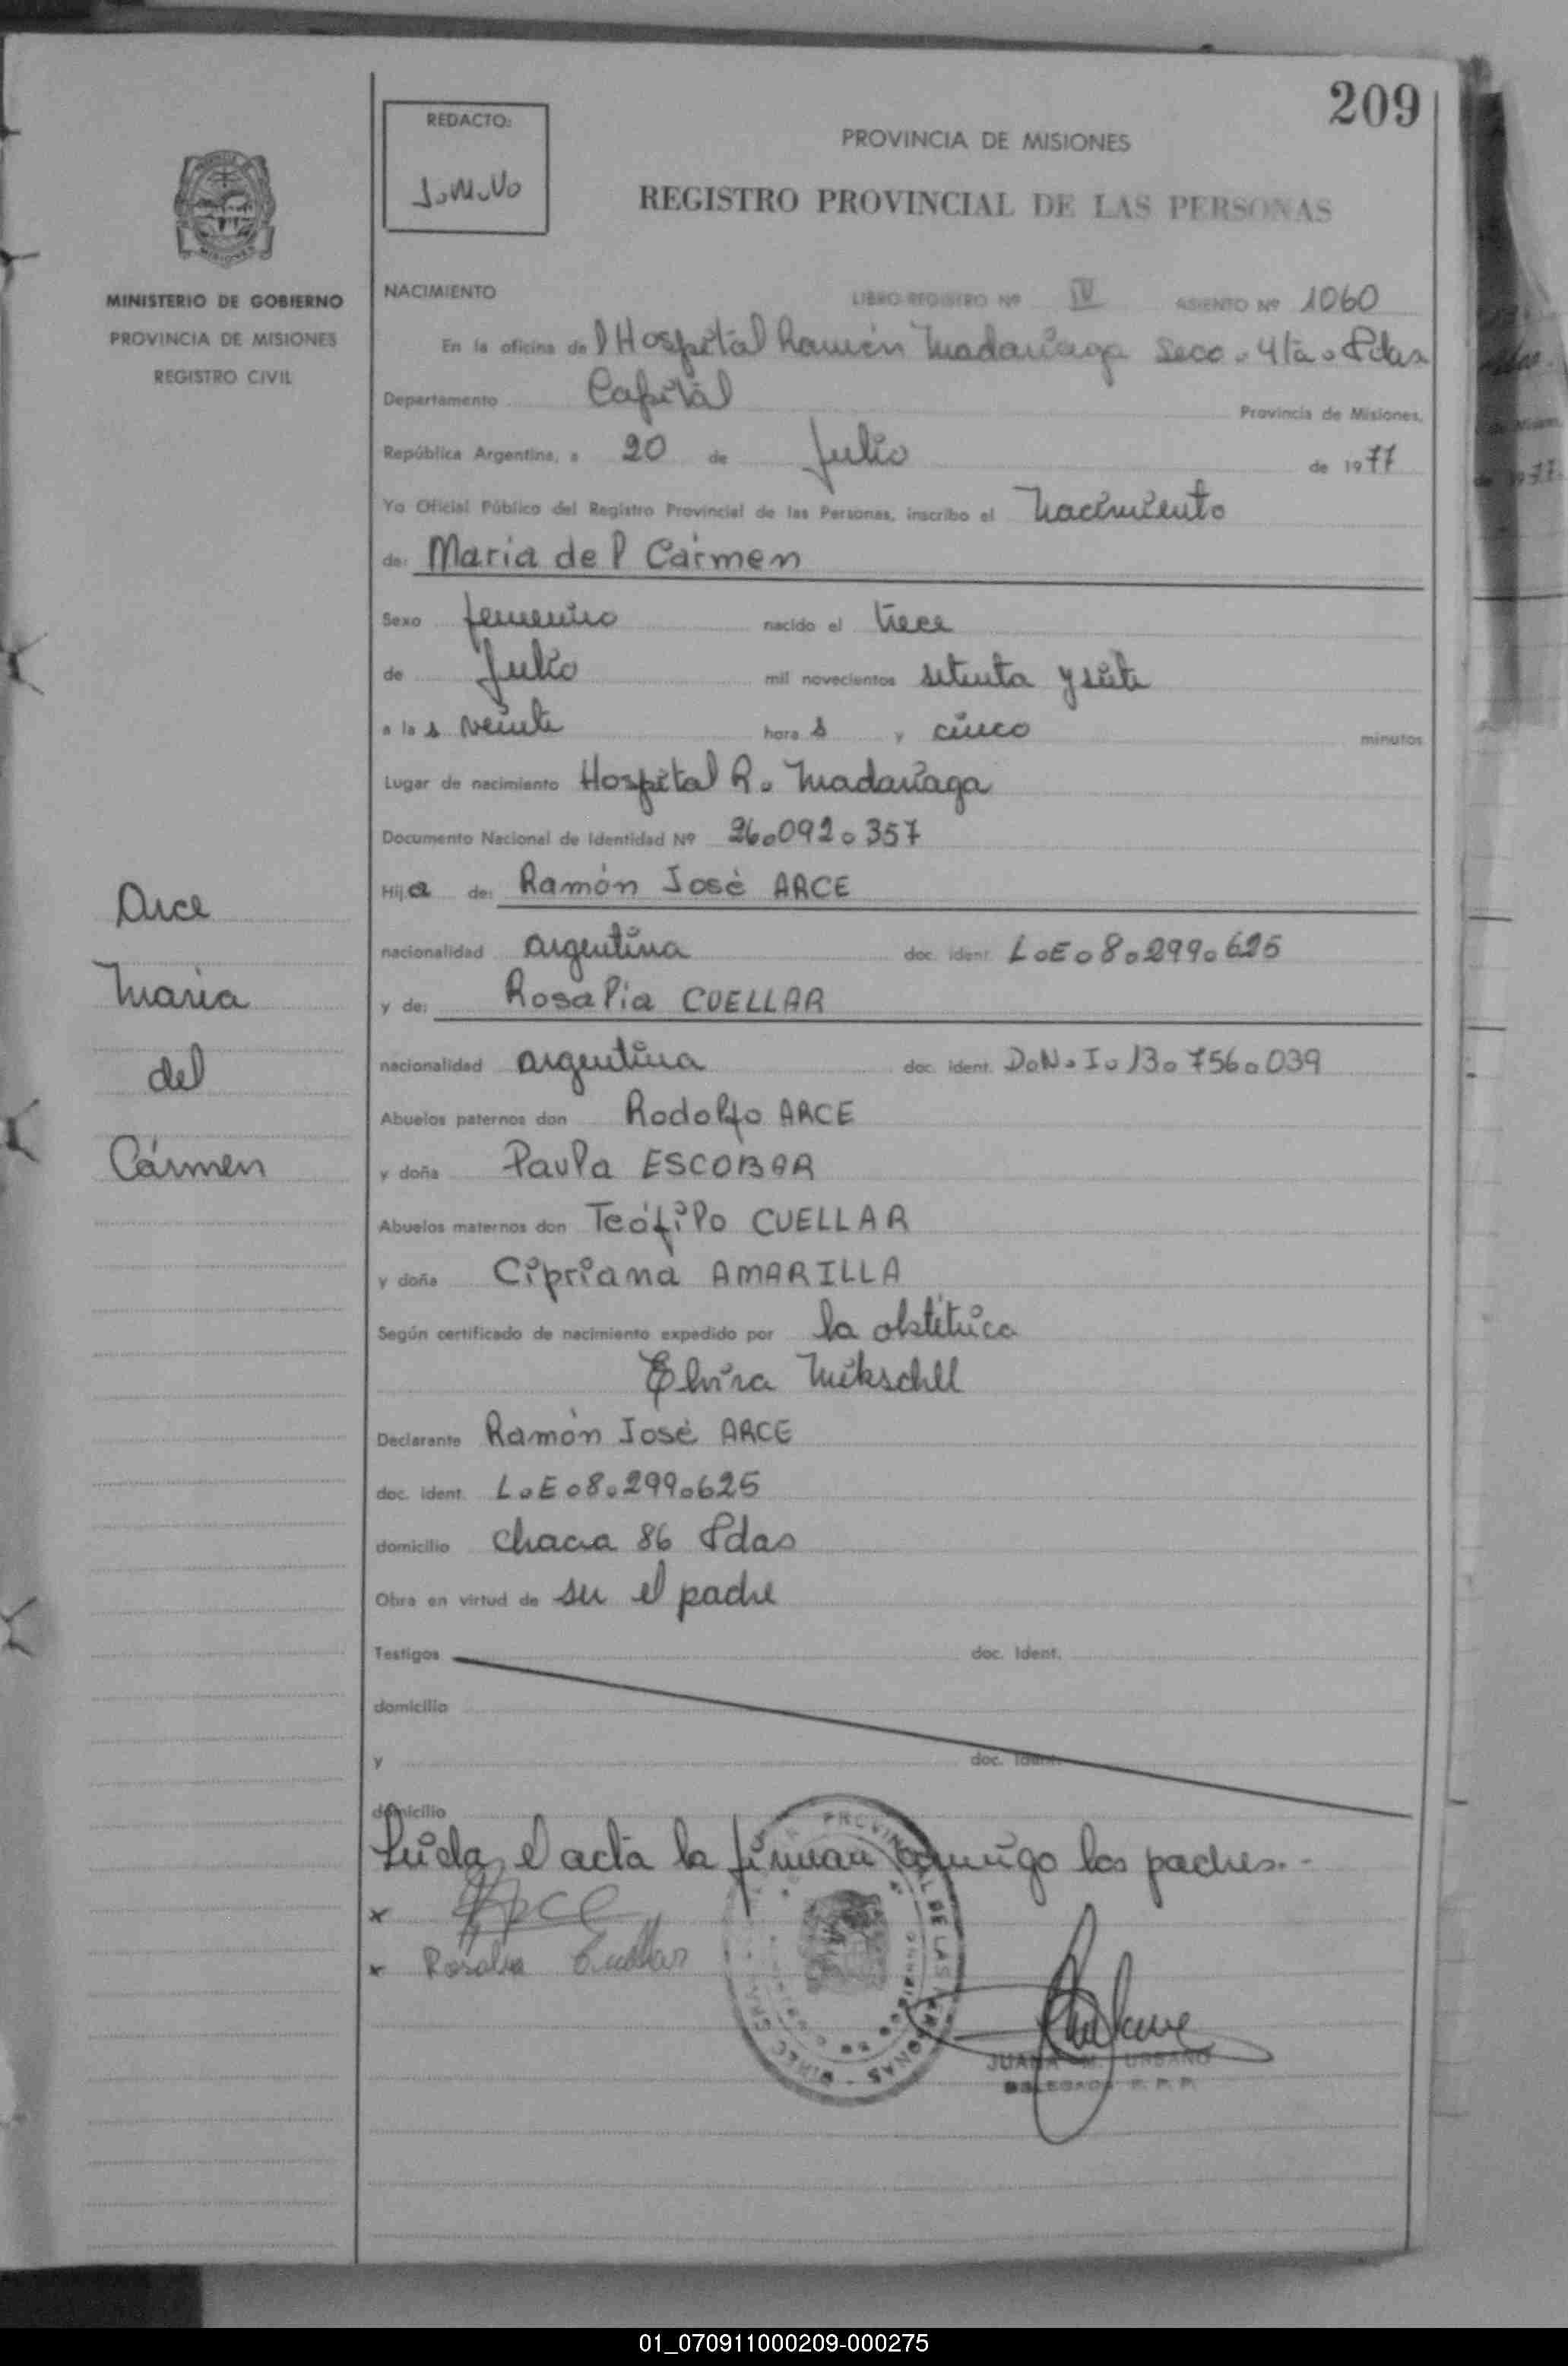 209
REDACTO:
J.M.Uo
PROVINCIA DE MISIONES
REGISTRO PROVINCIAL DE LAS PERSONAS
MINISTERIO DE GOBIERNO
PROVINCIA DE MISIONES
REGISTRO CIVIL
NACIMIENTO LIBRO REGISTRO Nº IV ASIENTO Nº 1060
En la oficina del Hospital Ramón Madariaga Secc. 4ta. Pdas
Departamento Capital Provincia de Misiones,
República Argentina, a 20 de Julio de 1977
Yo Oficial Público del Registro Provincial de las Personas, inscribo el Nacimiento
de: Maria del Cármen
Sexo femenino nacido el trece
de Julio mil novecientos setenta y siete
a las veinte horas y cinco minutos
Lugar de nacimiento Hospital R. Madariaga
Documento Nacional de Identidad Nº 26.092.357
Hija de: Ramón José ARCE
nacionalidad argentina doc. ident. L.E.8.299.625
y de: Rosalia CUELLAR
nacionalidad argentina doc. ident. D.N.I.13.756.039
Abuelos paternos don Rodolfo ARCE
y doña Paula ESCOBAR
Abuelos maternos don Teófilo CUELLAR
y doña Cipriana AMARILLA
Según certificado de nacimiento expedido por la obstétrica
Elvira Mikschll
Declarante Ramón José ARCE
doc. ident. L.E.8.299.625
domicilio chacra 86 Pdas
Obra en virtud de ser el padre
Testigos doc. ident.
domicilio
y doc. ident.
domicilio
Leida el acta la firman conmigo los padres.-
x Arce
x Rosalia Cuellar
JUANA M. URBANO
DELEGADA R. P. P.
Arce
Maria
del
Cármen
01_070911000209-000275